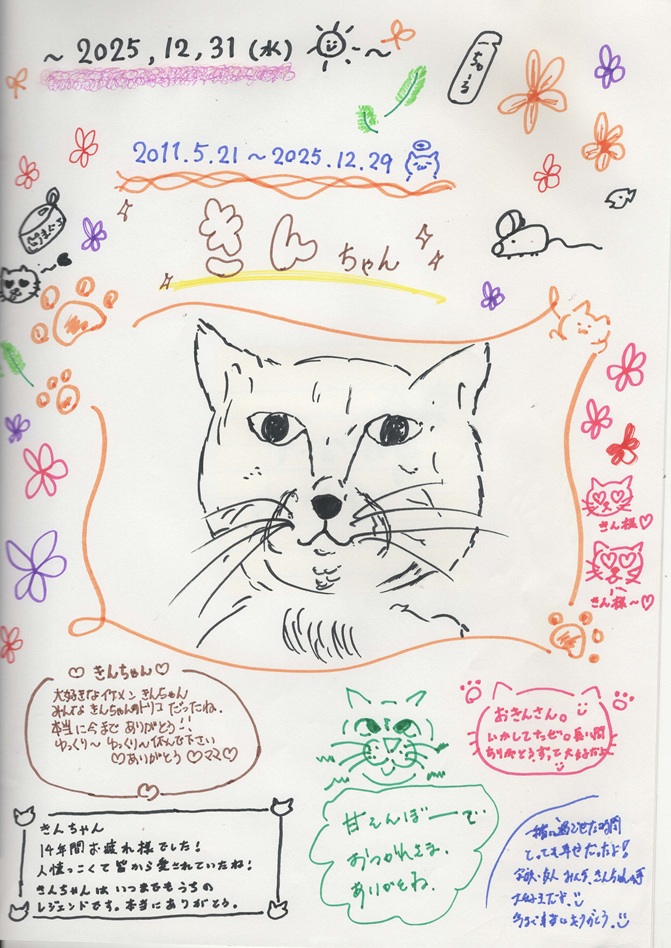 ~ 2025,12,31(水) ~
ちゅ~る
2011.5.21~2025.12.29
きんちゃん
まぐろ
きん様♡
きん様~♡
♡きんちゃん♡
大好きなイケメン きんちゃん
みんな きんちゃんのトリコ だったね.
本当に今まで ありがとう!!
ゆっくり~ ゆっくり~休んで下さい
♡ありがとう ♡ママ♡
おきんさん。
いかしてたぜ。長い間
ありがとう。ずって大好きだよ
きんちゃん
14年間お疲れ様でした!
人懐っこくて皆から愛されていたね!
きんちゃんは いつまでも うちの
レジェンドです。本当にありがとう。
甘えんぼーで
おつかれさま.
ありがとね.
一緒に過ごせた時間
とっても幸せだったよ!
みんな、きんちゃんの事
大好きだよ
今まで本当にありがとう。